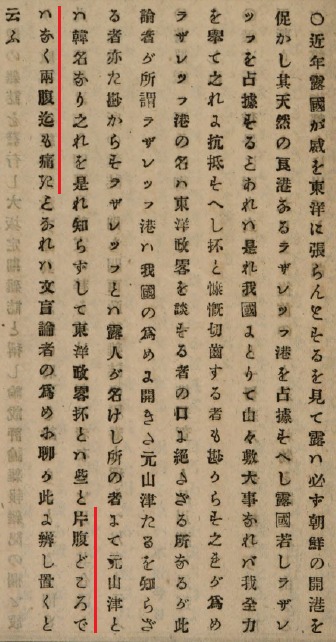 ○近年露國が威を東洋に張らんとするを見て露ハ必ず朝鮮の開港を
促かし其天然の良港なるラザレッフ港を占據すへし露國若しラザレ
ッフを占據するとあれハ是れ我國にとりて山々敷大事なれバ我全力
を擧て之れに抗抵すへし抔と慷慨切齒する者も尠からす之れが爲め
ラザレッフ港の名ハ東洋政畧を談する者の口に絶えざる所なるが此
論者が所謂ラザレッフ港ハ我國の爲めに開きた元山津たるを知らざ
る者亦た尠からすラザレッフとハ露人が名けし所の者にて元山津と
ハ韓名なり之れを是れ知らずして東洋政畧抔とハ些と片腹どころで
ハなく兩腹迄も痛たとなれハ文盲論者の爲めに聊か此に辨し置くと
云ふ